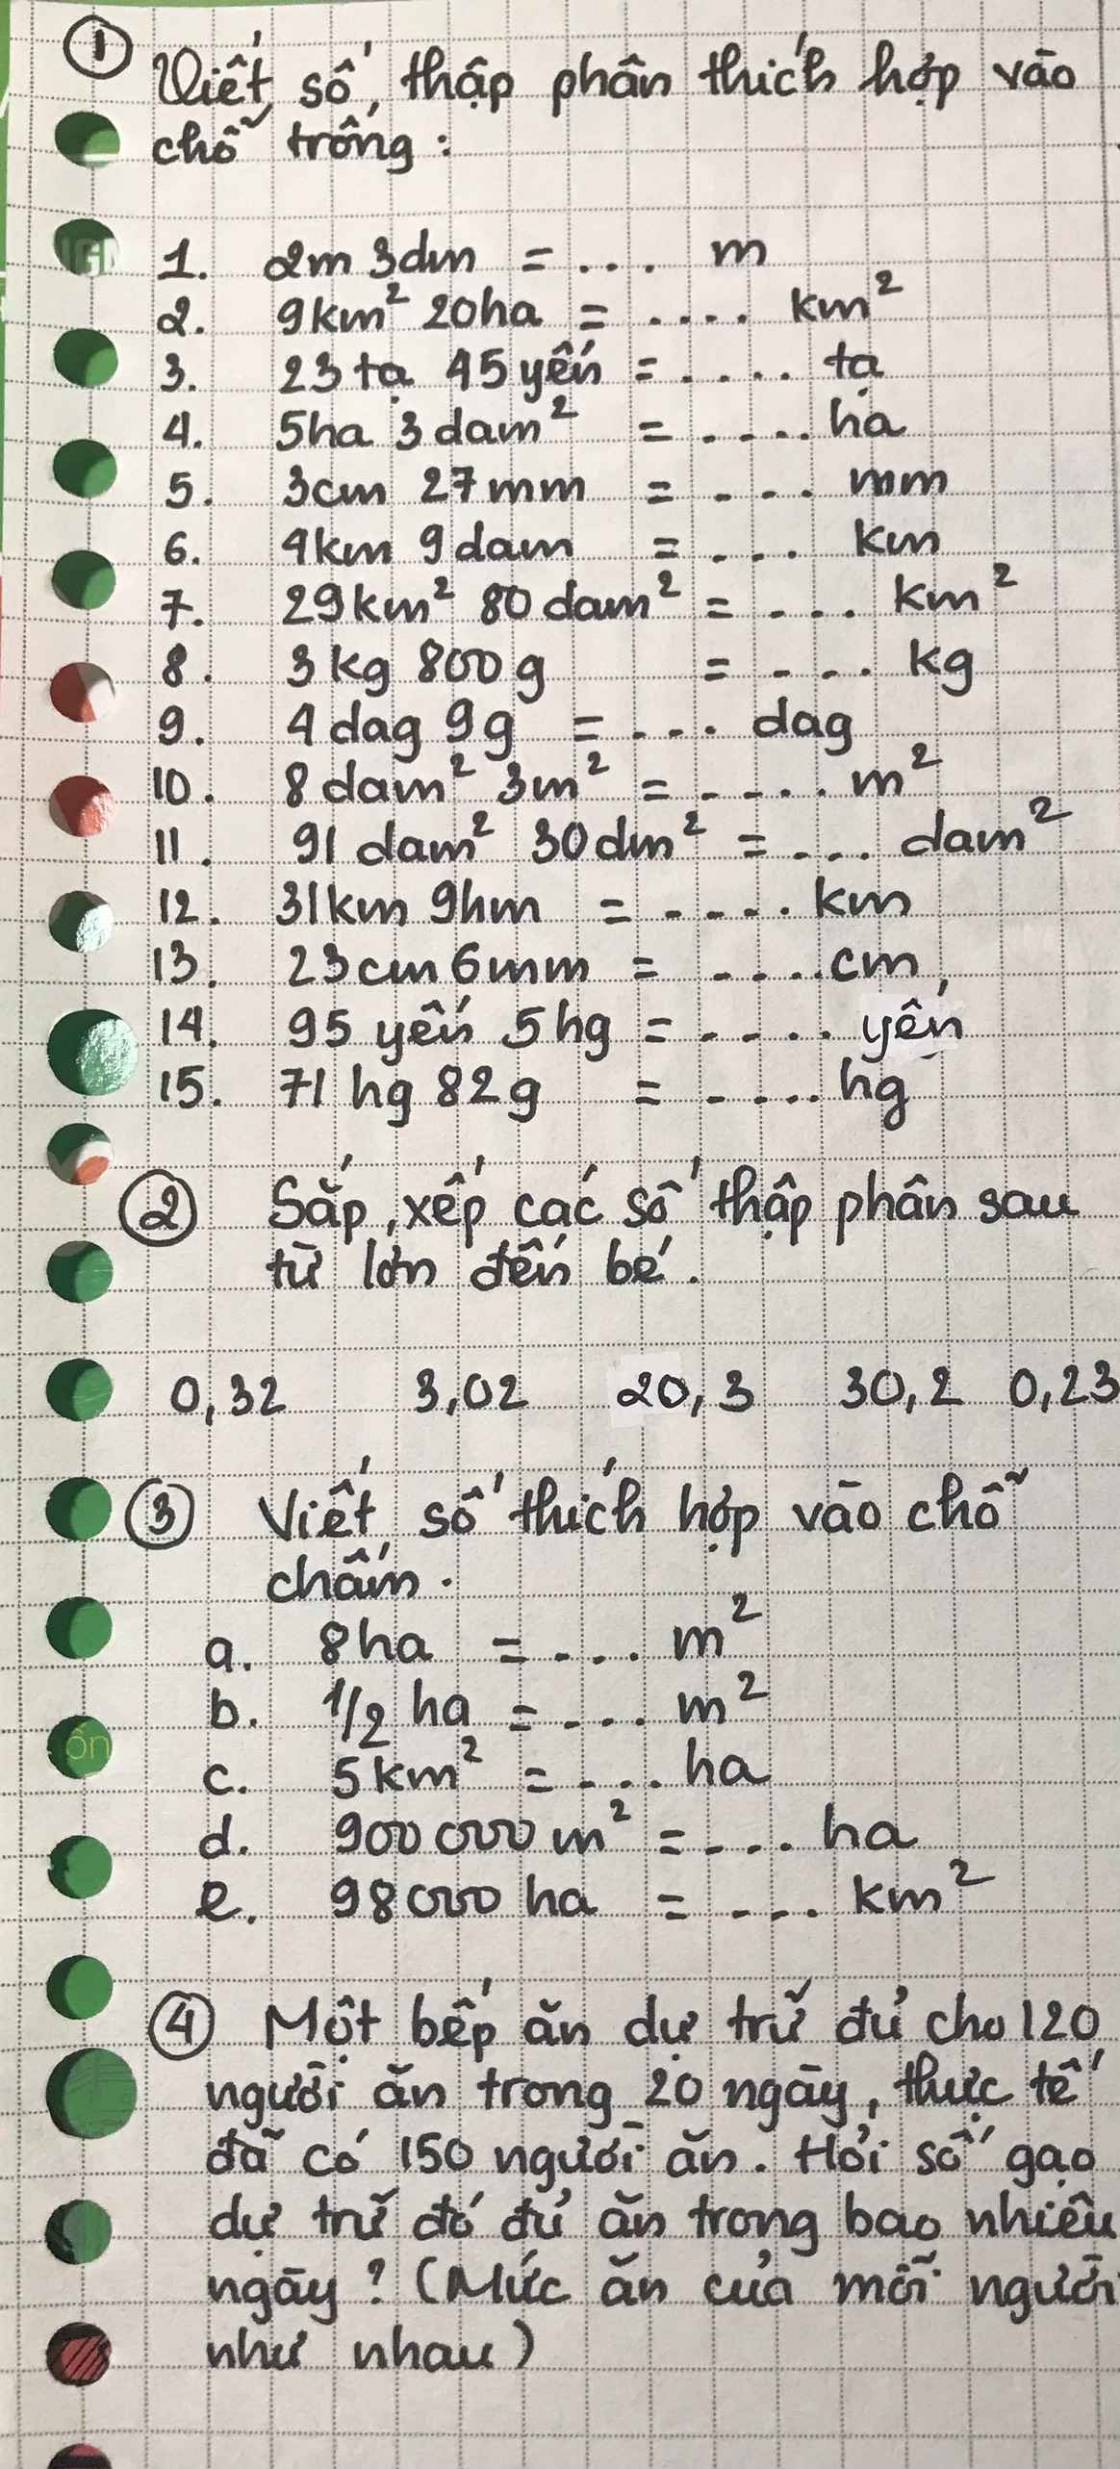 ① Viết số thập phân thích hợp vào
chỗ trống:
1. 2m 3dm = ... m
2. 9km² 20ha = .... km²
3. 23tạ 45yến = .... tạ
4. 5ha 3dam² = .... ha
5. 3cm 27mm = .... mm
6. 4km 9dam = .... km
7. 29km² 80dam² = .... km²
8. 3kg 800g = .... kg
9. 4dag 9g = .... dag
10. 8dam² 3m² = ..... m²
11. 91dam² 30dm² = .... dam²
12. 31km 9hm = ..... km
13. 23cm 6mm = ..... cm
14. 95 yến 5hg = ..... yến
15. 71 hg 82g = ..... hg
② Sắp xếp các số thập phân sau
từ lớn đến bé.
0,32 3,02 20,3 30,2 0,23
③ Viết số thích hợp vào chỗ
chấm.
a. 8ha = .... m²
b. 1/2 ha = .... m²
c. 5km² = .... ha
d. 900 000 m² = .... ha
e. 98000 ha = .... km²
④ Một bếp ăn dự trữ đủ cho 120
người ăn trong 20 ngày, thực tế
đã có 150 người ăn. Hỏi số gạo
dự trữ đó đủ ăn trong bao nhiêu
ngày? (Mức ăn của mỗi người
như nhau)